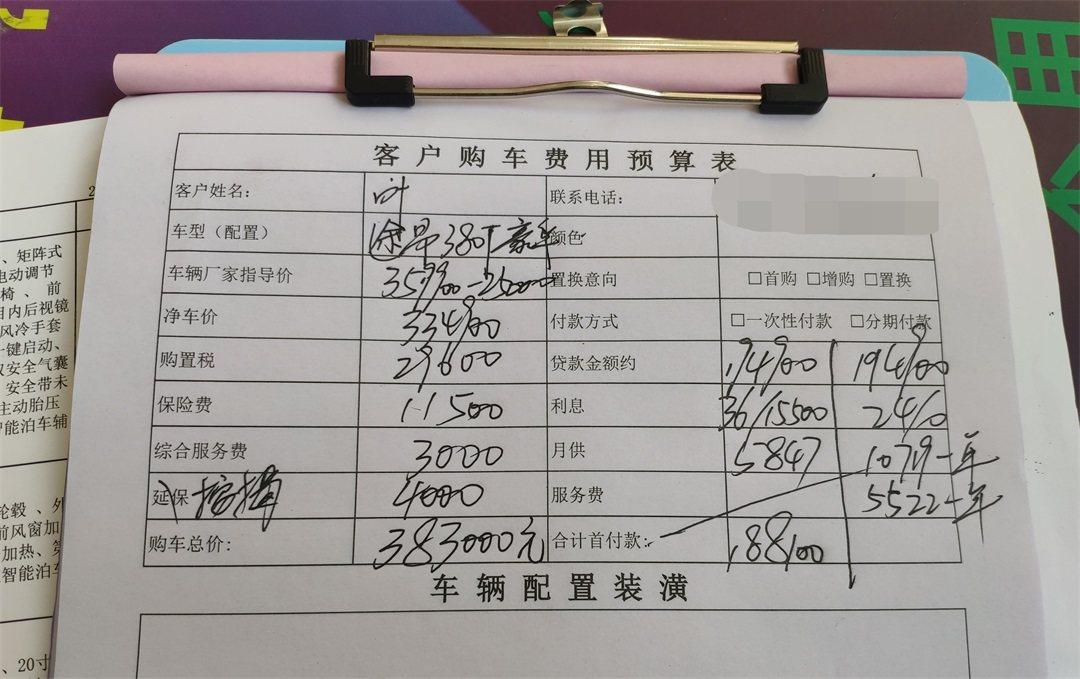 客户购车费用预算表
客户姓名: 叶 联系电话:
车型（配置） 途昂380T豪华 颜色
车辆厂家指导价 359900-25000 置换意向 □首购 □增购 □置换
净车价 334900 付款方式 □一次性付款 □分期付款
购置税 29600 贷款金额约 194900 194900
保险费 11500 利息 36/15500
综合服务费 3000 月供 5847 一年
延保 4000 服务费 5522一年
购车总价: 383000元 合计首付款: 188100
车辆配置装潢
、矩阵式
电动调节
椅、前
目内后视镜
风冷手套
一键启动、
双安全气囊
安全带未
主动胎压
智能泊车辅
轮毂、外
前风窗加
加热、第
智能泊车
、20寸